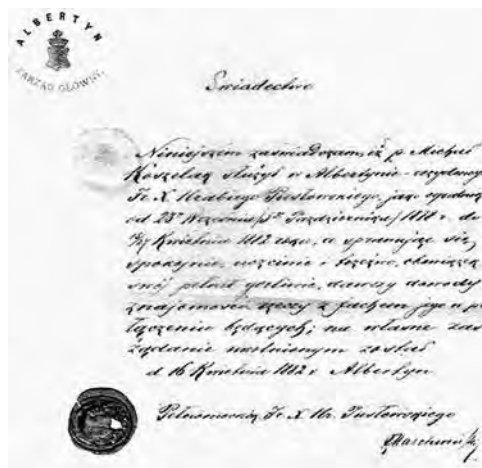 ALBERTYN
ZARZĄD GŁÓWNY
Świadectwo
Niniejszém zaświadczam, iż p. Michał
Koszelak służył w Albertynie
Hrabiego Pusłowskiego, jako ogrodowy
od 23 Września 1880 r. do
Kwietnia 1882 roku, a sprawując się
spokojnie, uczciwie i trzeźwo, obowiązek
swój pełnił gorliwie, dawszy dowody
znajomości rzeczy z fachem jego w po
łączeniu będących; na własne zaś
żądanie uwolnionym został
d. 16 Kwietnia 1882 r. Albertyn
Pełnomocnik Hr. Pusłowskiego